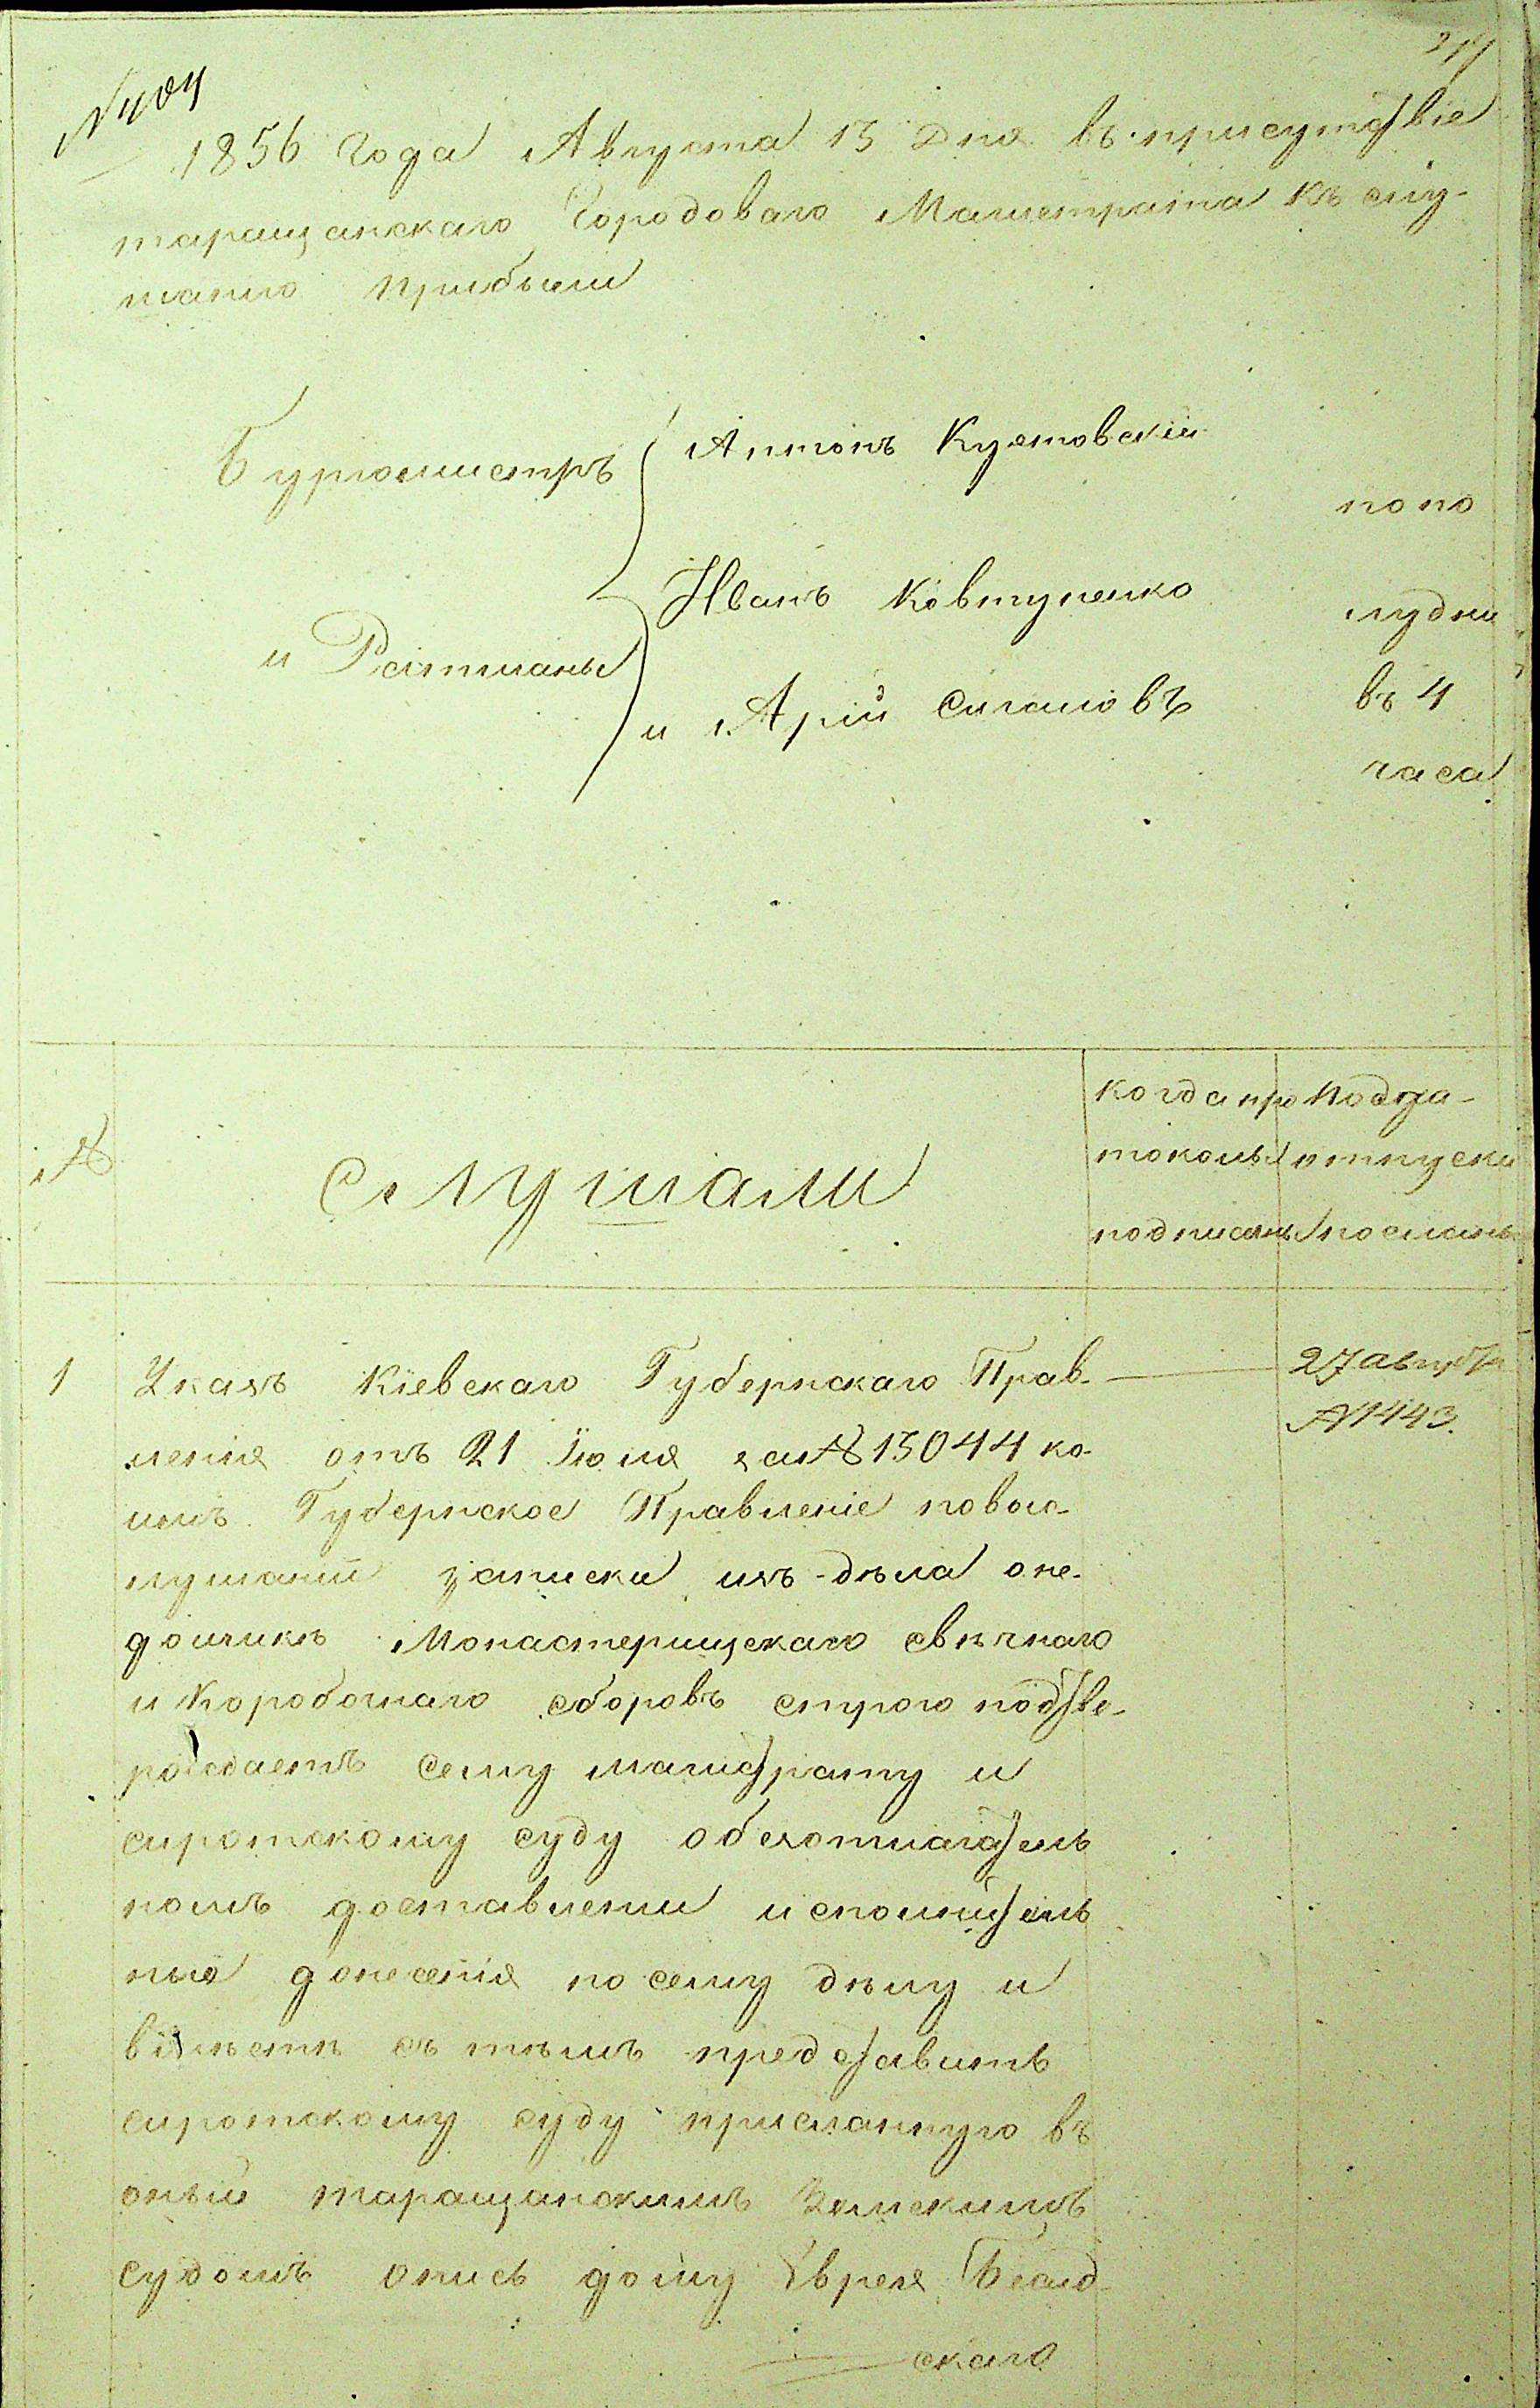 № 404
1856 Года Августа 13 Дня въ присутствіе
таращанскаго Городоваго Магистрата къ слу-
шанию прибыли
Бургомистръ
Антонъ Кулмовскій
попо
Иванъ Ковтуненко
лудни
и Ратманы
и Арій Сигаловъ
въ 4
часа
№
Слушали
когда про
токолъ
подписанъ
когда
отпуски
посланы
1 Указъ Кіевскаго Губернскаго Прав-
27 августа
№ 1443.
ленія отъ 21 Іюля за № 13044 ко-
имъ Губернское Правленіе повыс-
лушаніи записки изъ дѣла оне-
доимкѣ Монастерищскаго свѣчнаго
и Коробочнаго сборовъ строго подтве-
рождаетъ сему магистрату и
сиротскому суду обезотлагатель
номъ доставлении исполнитель
ные донесенія по сему дѣлу и
вмѣстѣ съ тѣмъ представить
сиротскому суду присланную въ
оный таращанскимъ Земскимъ
судомъ опись дому Еврея
скаго